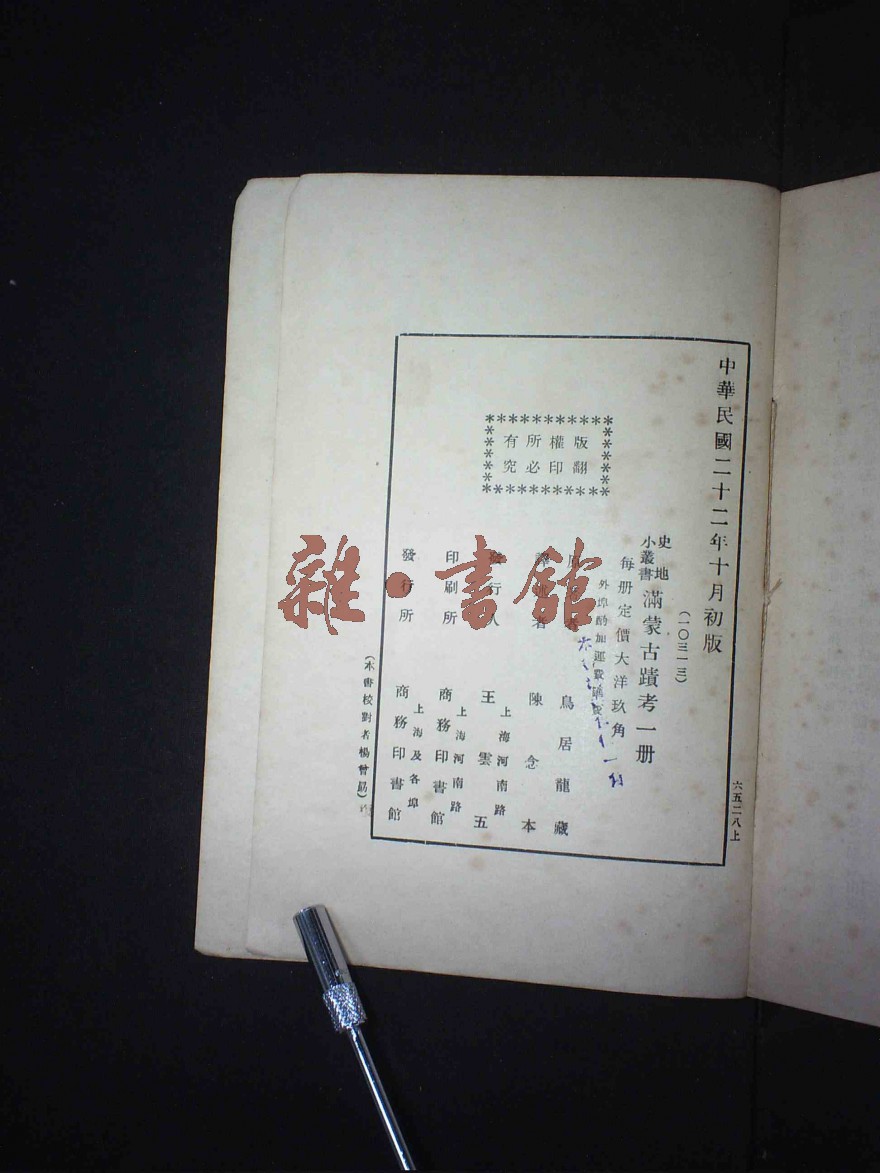 中華民國二十二年十月初版
(一〇三一三)
史地
小叢書
滿蒙古蹟考一册
每册定價大洋玖角
外埠酌加運費匯費
鳥居龍藏
譯述者
陳念本
發行人
王雲五
上海河南路
印刷所
商務印書館
上海河南路
發行所
商務印書館
上海及各埠
版權所有
翻印必究
(本書校對者楊曾勗)
六五二八上
雜·書館